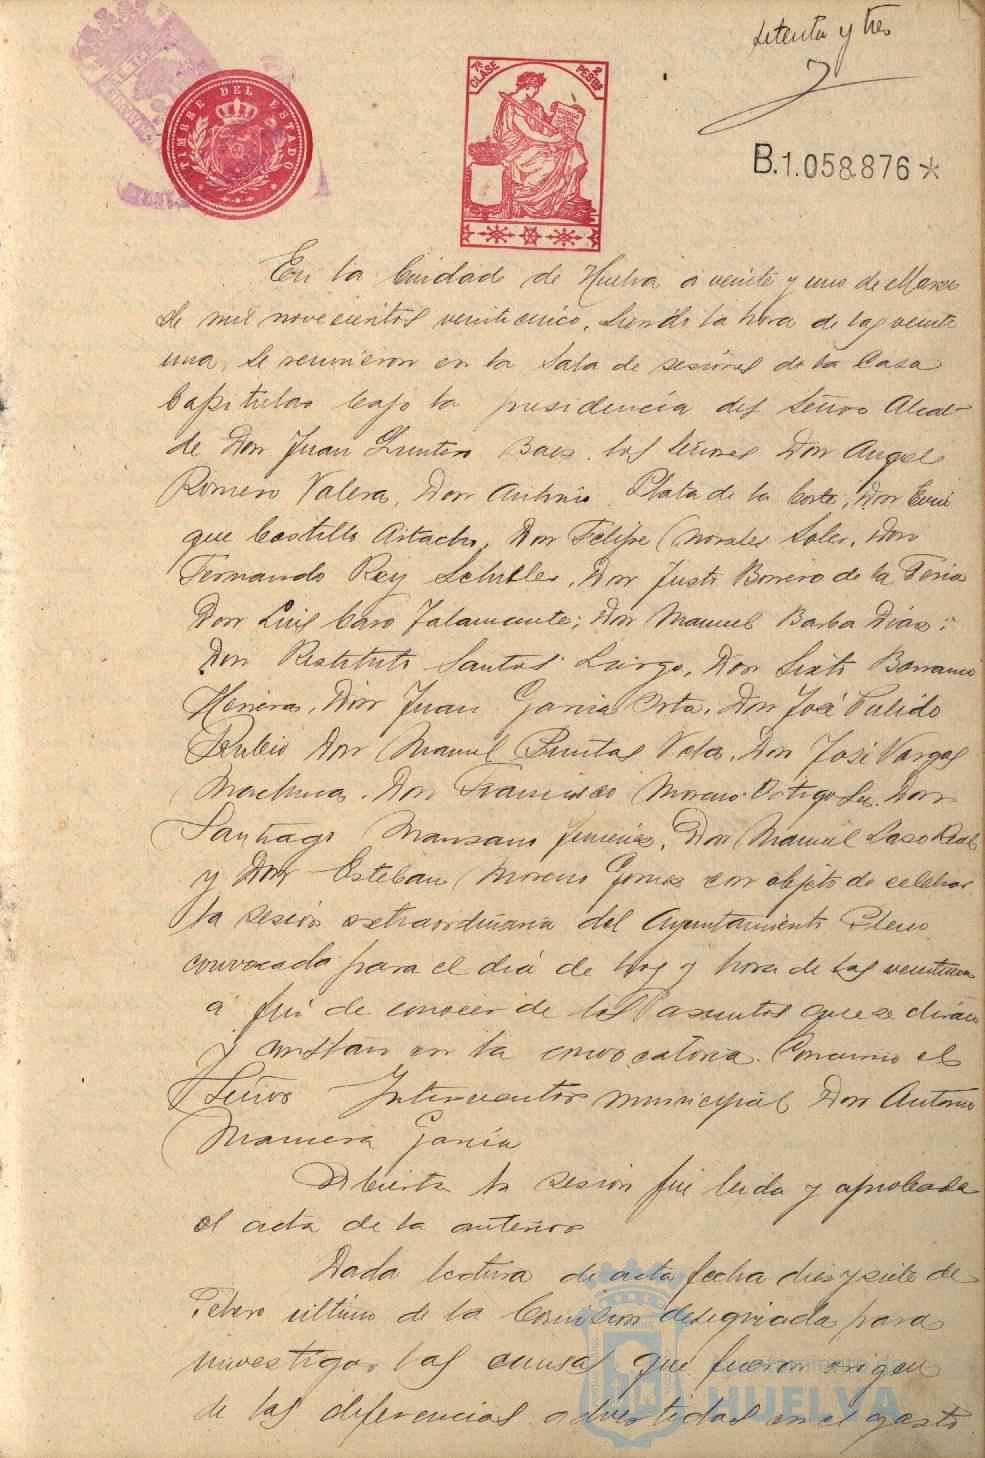 setenta y tres
TIMBRE DEL ESTADO
7ª CLASE
2 PESETAS
B.1.058.876*
En la Ciudad de Huelva a veinte y uno de Marzo
de mil novecientos veinticinco, siendo la hora de las veinte
una, se reunieron en la Sala de sesiones de la Casa
Capitular bajo la presidencia del Señor Alcal-
de Don Juan Quintero Baez. los Señores Don Angel
Romero Valera, Don Antonio Plata de la Corte, Don Enri
que Castillo Artacho, Don Felipe Morales Soler, Don
Fernando Rey Schiller, Don Justo Borrero de la Feria
Don Luis Caro Talamante; Don Manuel Barba Diaz;
Don Restituto Santos Luirgo, Don Sixto Barranco
Herrera, Don Juan Garcia Orta, Don José Pulido
Rubio Don Manuel Puntas Vela, Don José Vargas
Machuca. Don Francisco Moreno Ortigosa. Don
Santiago Manzano Jimenez, Don Manuel Laso Real
y Don Esteban Moreno Gomez con objeto de celebrar
la sesión extraordinaria del Ayuntamiento Pleno
convocada para el dia de hoy y hora de las veintiuna
a fin de conocer de los asuntos que se dirán
y constan en la convocatoria. Concurrio el
Señor Interventor municipal Don Antonio
Garcia
Abierta la sesión fue leida y aprobada
el acta de la anterior
Dada lectura de acta fecha diez y siete de
Febro ultimo de la Comision designada para
investigar las causas que fueron origen
de las diferencias advertidas en el gasto
Ayuntamiento de
HUELVA